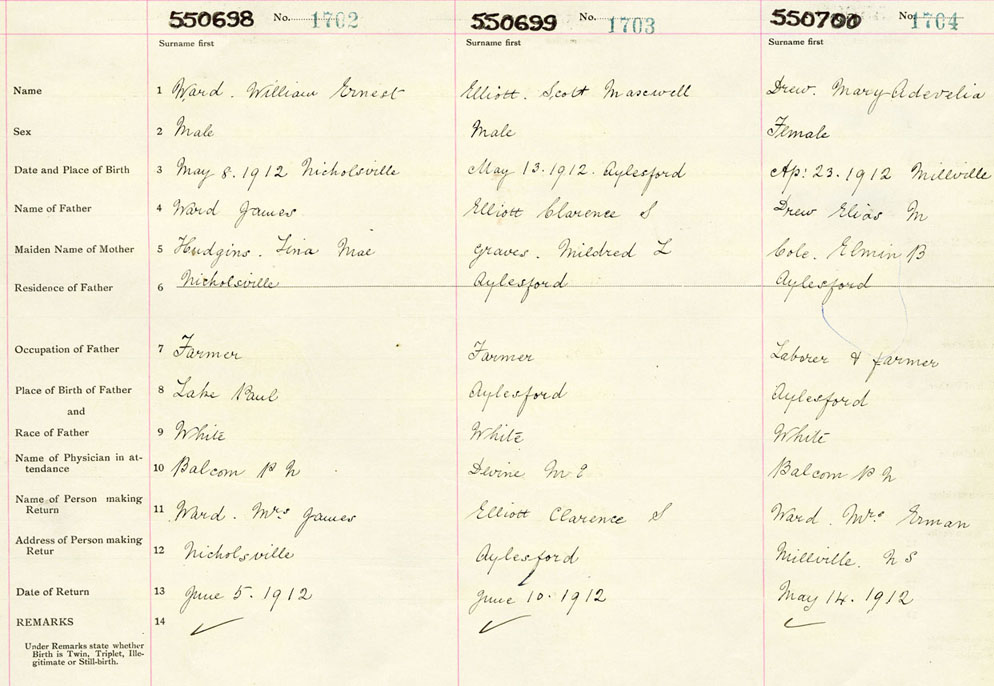 550698 No. 1702 550699 No. 1703 550700 No. 1704
Surname first Surname first Surname first
Name 1 Ward. William Ernest Elliott. Scott Maxwell Drew. Mary Adevelia
Sex 2 Male Male Female
Date and Place of Birth 3 May 8. 1912 Nicholsville May 13. 1912. Aylesford Ap: 23. 1912 Millville
Name of Father 4 Ward James Elliott Clarence S Drew Elias M
Maiden Name of Mother 5 Hudgins. Lina Mae Graves. Mildred L Cole. Elmin B
Residence of Father 6 Nicholsville Aylesford Aylesford
Occupation of Father 7 Farmer Farmer Laborer & farmer
Place of Birth of Father 8 Lake Paul Aylesford Aylesford
and
Race of Father 9 White White White
Name of Physician in at-
tendance 10 Balcom P N Devine M E Balcom P N
Name of Person making
Return 11 Ward. Mrs James Elliott Clarence S Ward. Mrs Erman
Address of Person making
Retur 12 Nicholsville Aylesford Millville. N S
Date of Return 13 June 5. 1912 June 10. 1912 May 14. 1912
REMARKS 14
Under Remarks state whether
Birth is Twin, Triplet, Ille-
gitimate or Still-birth.